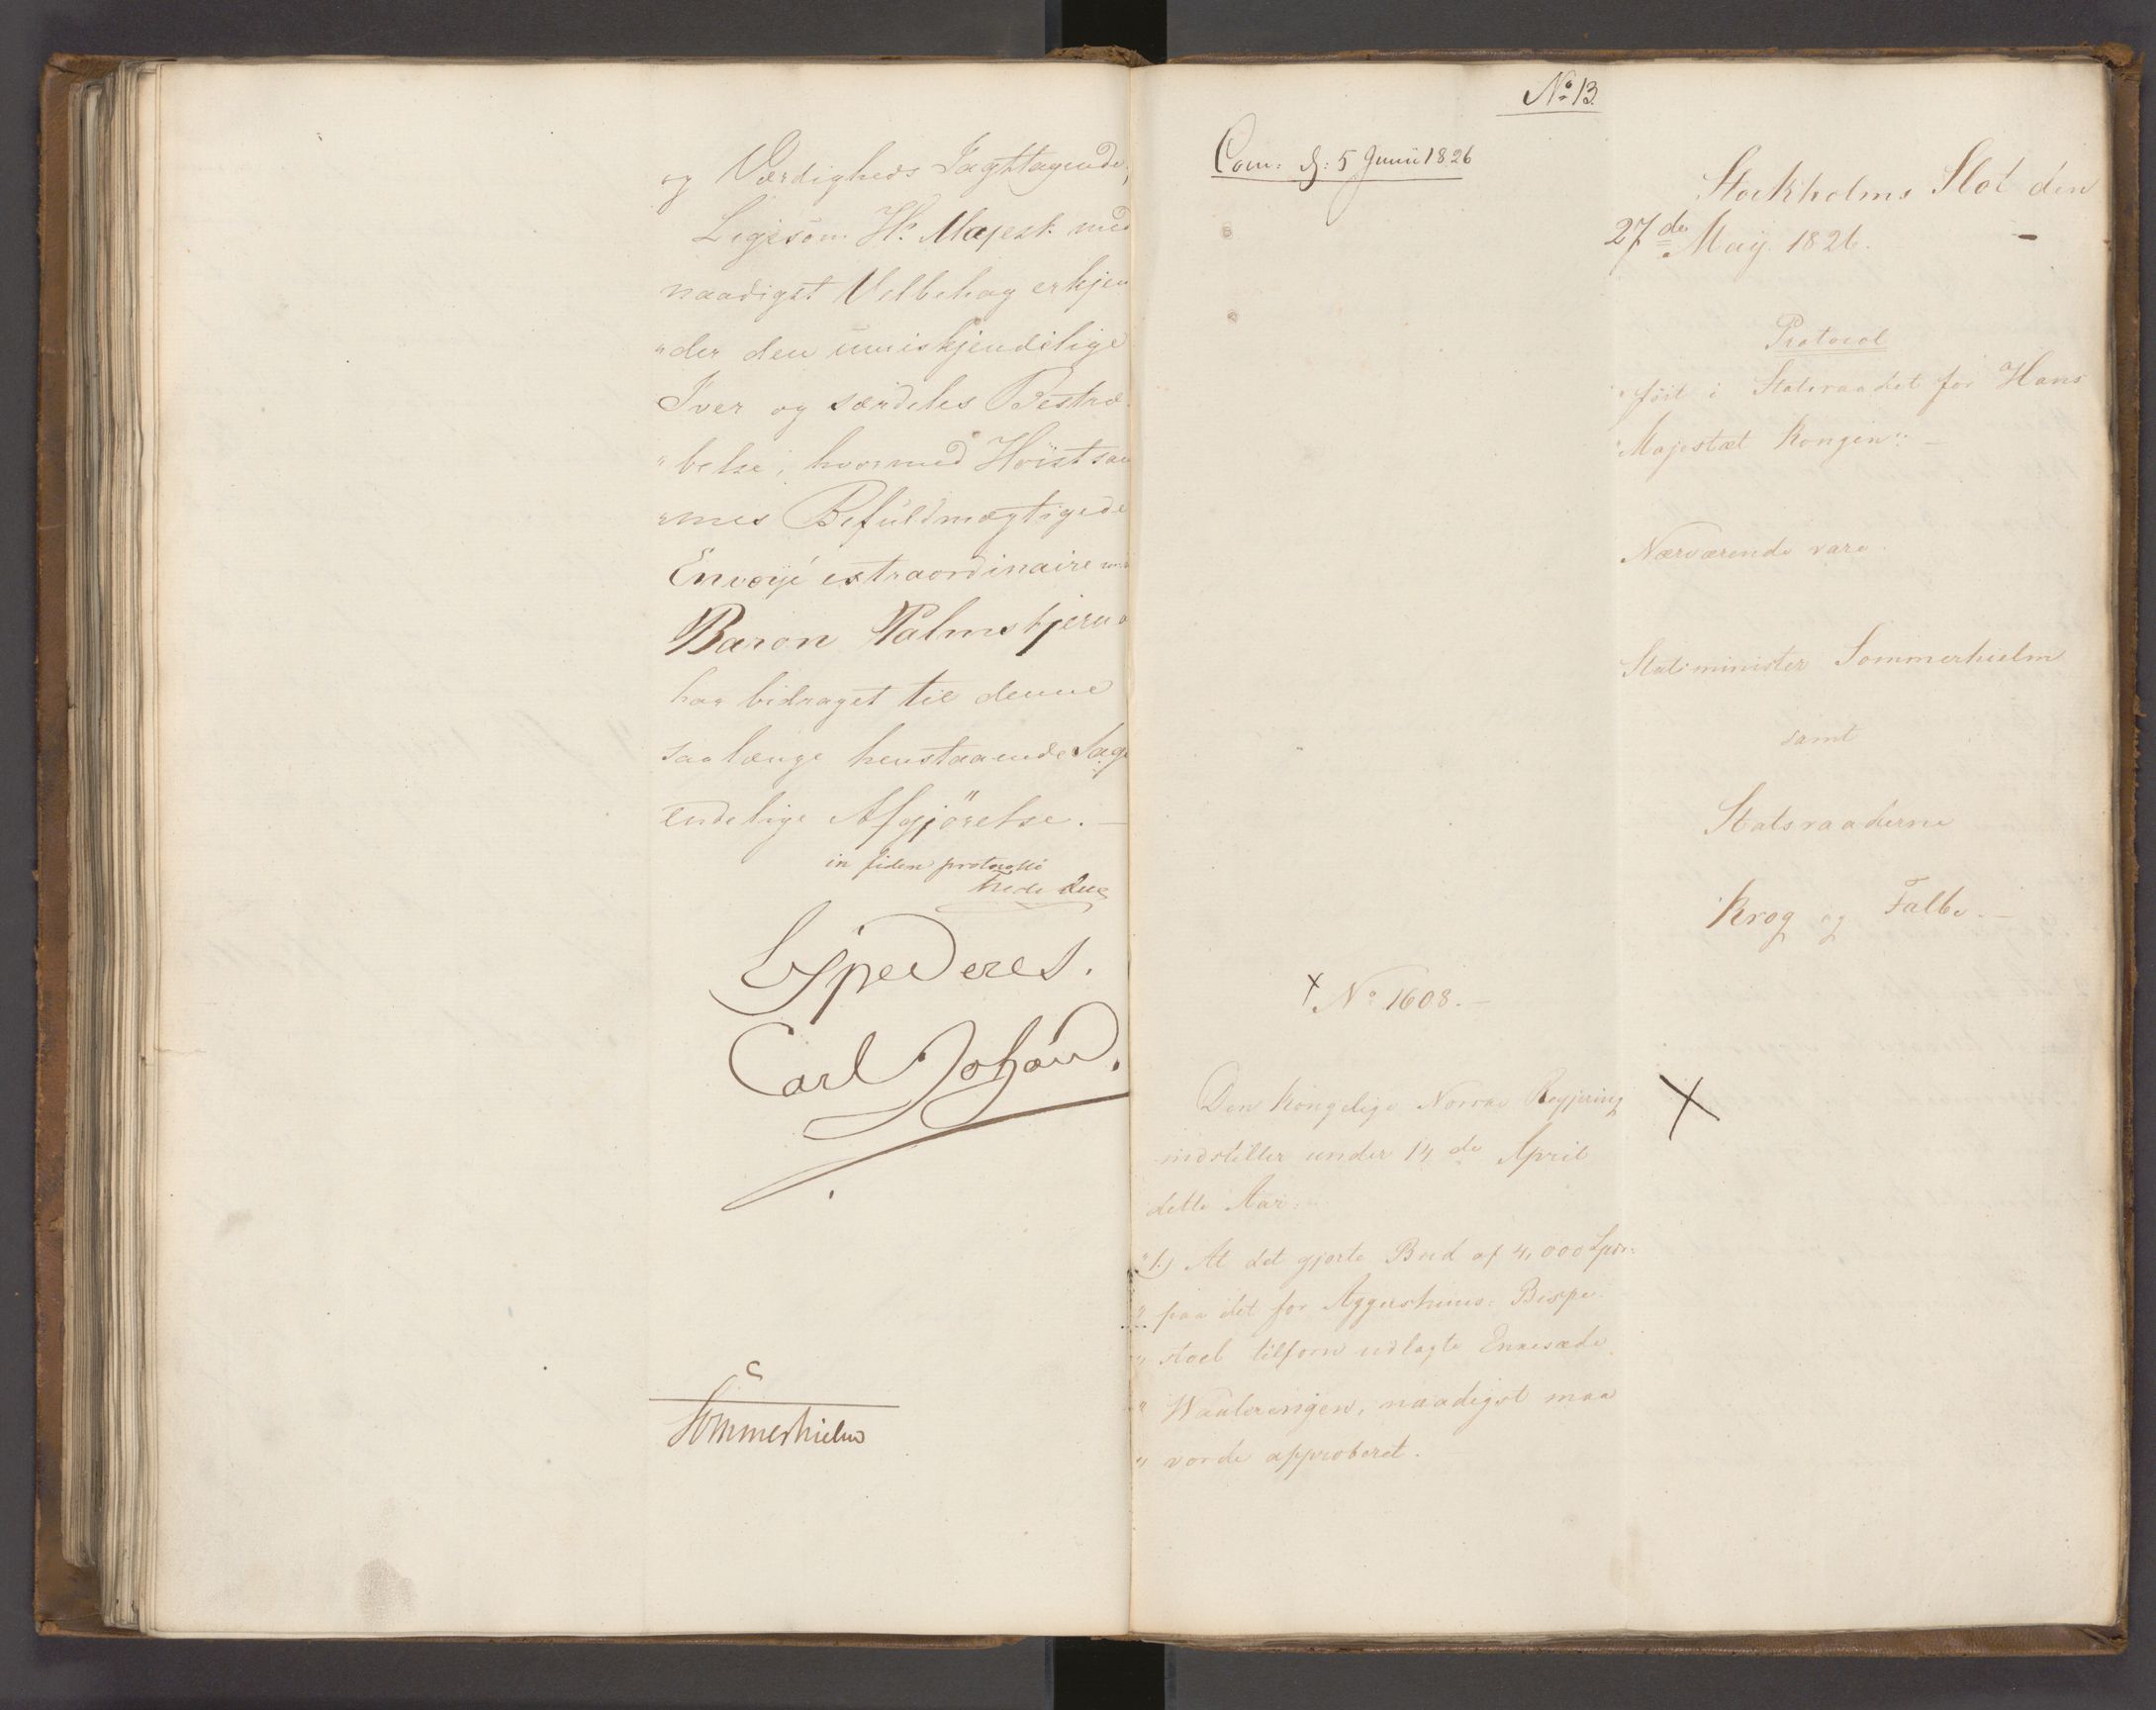 og Værdigheds Iagttagende,
Ligesom Hs. Majest. med
naadigst Velbehag erkjen
"der den umiskjendelige
Iver og særdeles Bestræ
"belse, hvormed Høistsam
"mes Befuldmægtigede
Envoyé extraordinaire
Baron Palmstjerna
har bidraget til denne
saa længe henstaaende Sags
endelige Afgjørelse. —
in fidem protocolli
Due
Expederes.
Carl Johan.
Sommerhielm
No. 13.
Com: d: 5 Junii 1826
Stockholms Slot den
27de May 1826. –
Protocol
"ført i Statsraadet for Hans
"Majestæt Kongen": –
Nærværende vare
Statsminister Sommerhielm
samt
Statsraaderne
Krog og Falbe. –
X No 1608. –
Den Kongelige Norske Regjering
indstiller under 14de April
dette Aar:
X
"1.) At det gjorte Bud af 4,000 Spd.
" paa det for Aggershuus: Bispe
" stoel tilforn udlagte Enkesæde
" Waalerengen, naadigst maa
" vorde approberet.